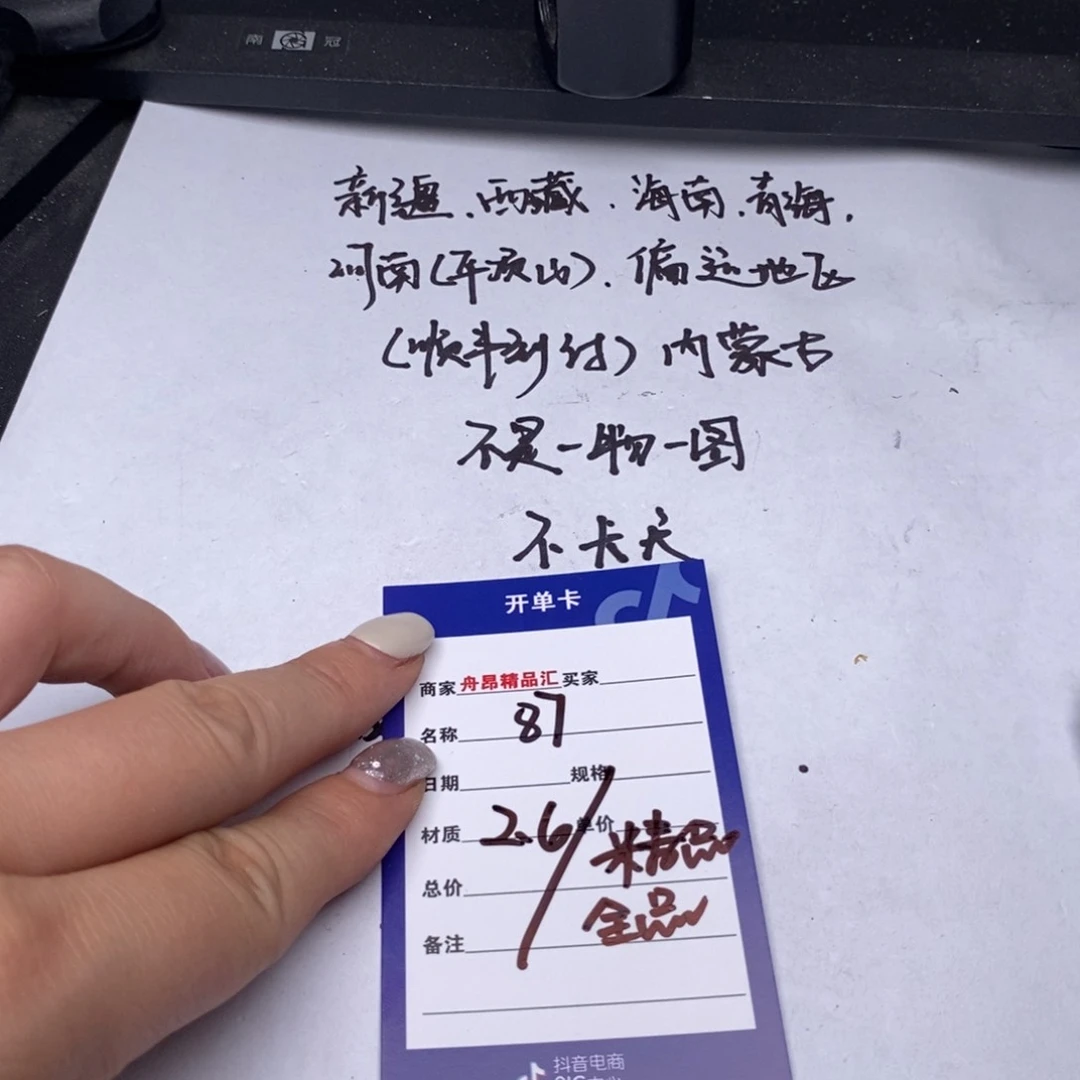 南 冠
新疆.西藏.海南.青海.
河南(平顶山).偏远地区
(顺丰到付)内蒙古
不是一物一图
不卡天
开单卡
商家 舟昂精品汇 买家
名称 87
日期 规格
材质 2.6/ 单价 精品
总价 全品
备注
抖音电商